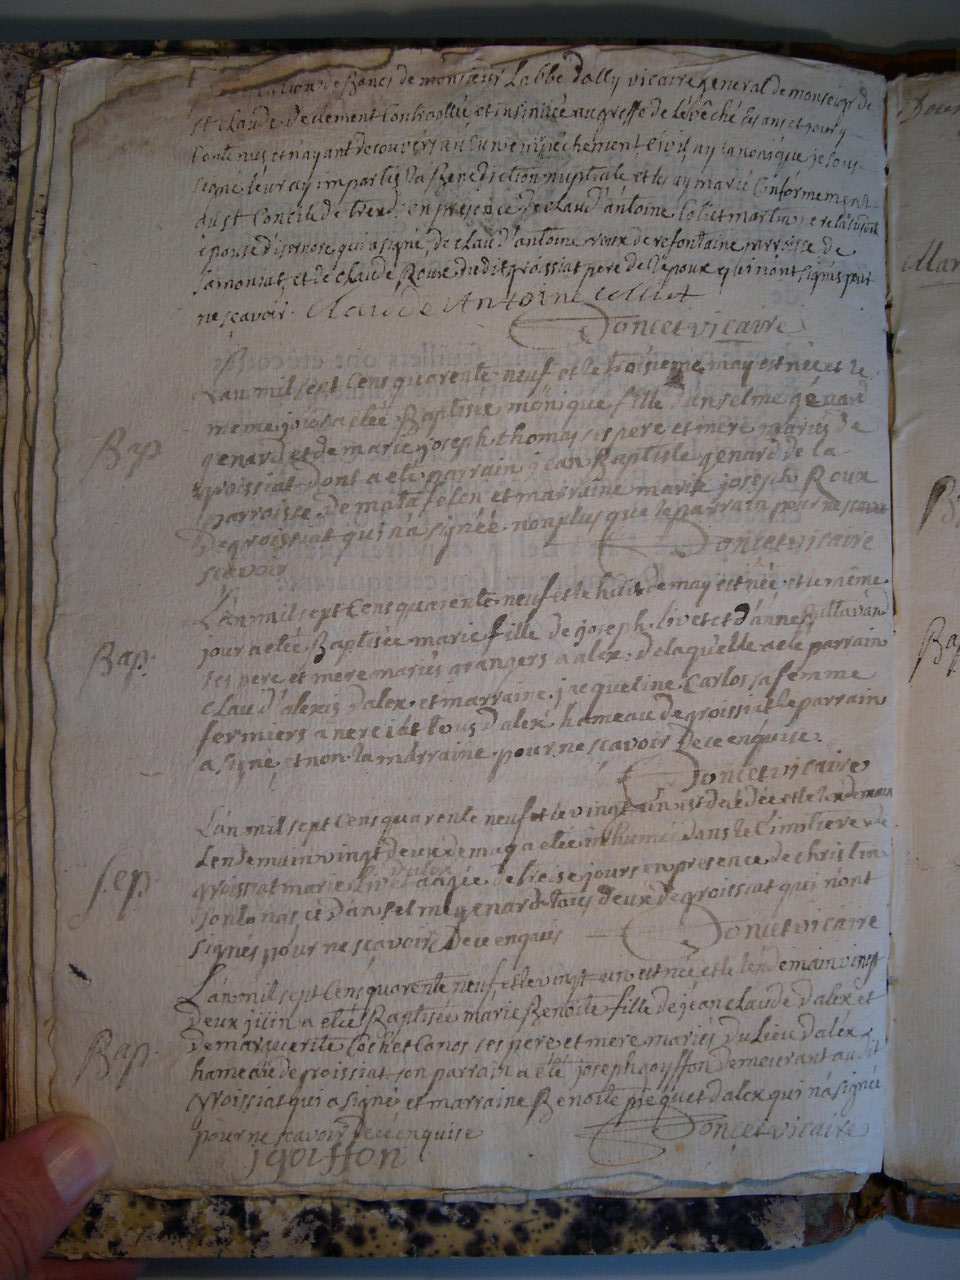 de Bancs de monsieur Labbe dolly vicaire general de monseigr de
st claude de clement Controollée et insinuée au greffe de levêché les ans et jour y
contenus et n'ayant decouvers aucun empechement Civil ny canonique je sous
signé leur ay impartis la Benediction nuptiale et les ay marié Conformement
du st Concile de trend, en presence de claud'antoine Collet martin
epouse qui a signé, de claud'antoine roux de refontaine parroisse de
samoniat, et de claude Roux dudit groissiat pere de l'epoux qui n'ont signés pour
ne scavoir. Claude Antoine Collet
Doncet vicaire
Lan mil sept Cens quarente neuf et le troisieme may est née et le
meme jour a etée Baptisée monique fille d'anselme génard
genard et de marie joseph thomas ses pere et mere mariés de
Bap
groissiat dont a eté parrain jean Baptiste genard de la
parroisse de matafelon et marraine marie joseph Roux
de groissiat qui n'a signée non plus que le parrain pour ne scavoir
scavoir
Doncet vicaire
L'an mil sept Cens quarente neuf et le huit de may est née et le même
jour a etée Baptisée marie fille de joseph livet et d'anne
Bap.
ses pere et mere mariés grangers a alex, de laquelle a eté parrain
claud'alexis d'alex et marraine jacqueline Carlos sa femme
fermiers a nerciat tous d'alex hameau de groissiat le parrain
a signé et non la marraine pour ne scavoir de ce enquise.
Doncet vicaire
L'an mil sept Cens quarente neuf et le vingt un est decedée et le lendemain
Lendemain vingt deux de may a etée inhumée dans le Cimitiere de
Sep.
groissiat marie Livet agée de treise jours en presence de christin
d'anselme genard tous deux de groissiat qui n'ont
signés pour ne scavoir de ce enquis
Doncet vicaire
L'an mil sept Cens quarente neuf et le vingt un est née et le lendemain vingt
deux juin a etée Baptisée marie Benoite fille de jean claude d'alex et
Bap.
de marguerite Cochet Canos ses pere et mere mariés du lieu d'alex
hameau de groissiat son parrain a eté joseph goyffon demeurant audit
groissiat qui a signé et marraine Benoite piequet d'alex qui n'a signée
pour ne scavoir de ce enquise
Doncet vicaire
J goiffon